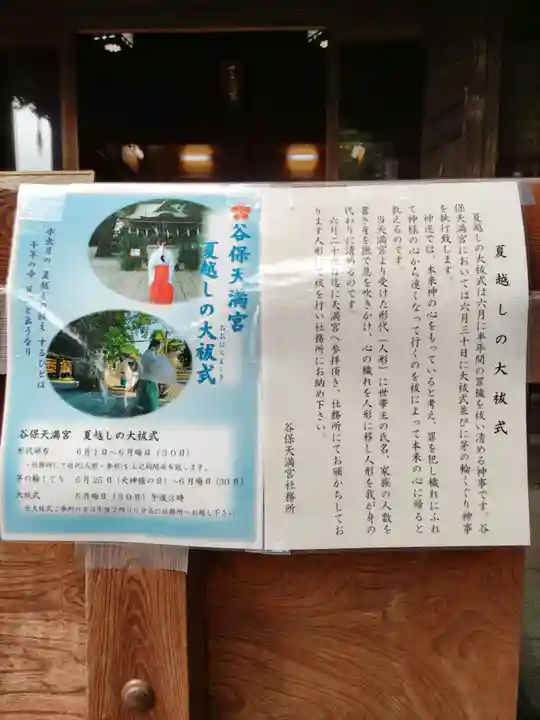 谷保天満宮
夏越しの大祓式
おおはらえしき
水無月の 夏越しの祓え するひとは
千年の命
谷保天満宮 夏越しの大祓式
形代頒布 6月1日~6月晦日(30日)
茅の輪くぐり 6月25日(天神様の日)~6月晦日(30日)
大祓式 6月晦日(30日)午後3時
夏越しの大祓式
夏越しの大祓式は六月に半年間の罪穢を祓い清める神事です。谷
保天満宮においては六月三十日に大祓式並びに茅の輪くぐり神事
を執行致します。
神道では、本来神の心をもっていると考え、罪を犯し穢れにふれ
て神様の心から遠くなって行くのを祓によって本来の心に帰ると
教えるのです。
当天満宮より受けた形代(人形)に世帯主の氏名、家族の人数を
書き身を撫で息を吹きかけ、心の穢れを人形に移し人形を我が身の
代わりに清めるのです。
迄に天満宮へ参拝頂き、社務所にてお頒かちしてお
ります人形にて祓を行い社務所にお納め下さい。
谷保天満宮社務所